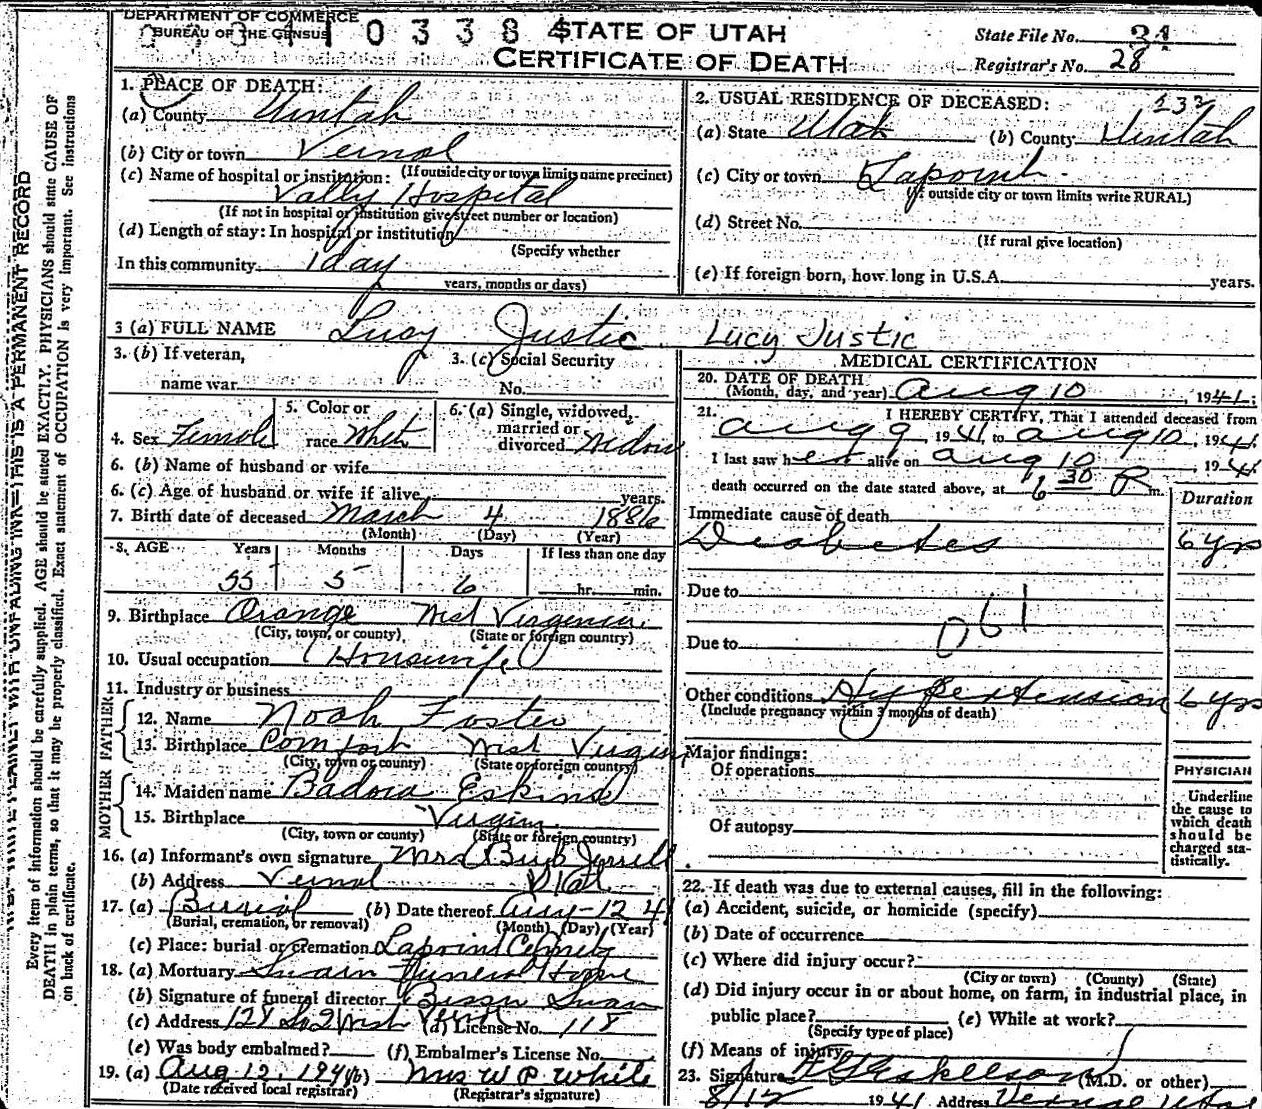 DEPARTMENT OF COMMERCE
BUREAU OF THE CENSUS
0 3 3 8 4
STATE OF UTAH
CERTIFICATE OF DEATH
State File No. 34
Registrar's No. 28
1. PLACE OF DEATH:
(a) County Uintah
(b) City or town Vernal
(If outside city or town limits name precinct)
(c) Name of hospital or institution:
Vally Hospital
(If not in hospital or institution give street number or location)
(d) Length of stay: In hospital or institution
(Specify whether
In this community 1 day
years, months or days)
2. USUAL RESIDENCE OF DECEASED:
(a) State Utah (b) County Uintah
(c) City or town Lapoint
(If outside city or town limits write RURAL)
(d) Street No.
(If rural give location)
(e) If foreign born, how long in U.S.A. years.
3 (a) FULL NAME Lucy Justic Lucy Justic
3. (b) If veteran,
name war
3. (c) Social Security
No.
4. Sex Female
5. Color or
race White
6. (a) Single, widowed,
married or
divorced Widow
6. (b) Name of husband or wife
6. (c) Age of husband or wife if alive, years.
7. Birth date of deceased March 4 1886
(Month) (Day) (Year)
8. AGE Years Months Days If less than one day
55 5 6 hr. min.
9. Birthplace Orange West Virginia
(City, town, or county) (State or foreign country)
10. Usual occupation Housewife
11. Industry or business
FATHER
12. Name Noah Foster
13. Birthplace Comfort West Virgin
(City, town or county) (State or foreign country)
MOTHER
14. Maiden name Badora Eskins
15. Birthplace Virgin
(City, town or county) (State or foreign country)
16. (a) Informant's own signature Mrs
(b) Address Vernal Utah
17. (a) Burial (b) Date thereof Aug-12 41
(Burial, cremation, or removal) (Month) (Day) (Year)
(c) Place: burial or cremation Lapoint
18. (a) Mortuary Swain Funeral Home
(b) Signature of funeral director Swain
(c) Address 128 So 2 West Vernal (d) License No. 118
(e) Was body embalmed? (f) Embalmer's License No.
19. (a) Aug 12, 1941 (b) Mrs W P White
(Date received local registrar) (Registrar's signature)
MEDICAL CERTIFICATION
20. DATE OF DEATH
(Month, day, and year) Aug 10, 1941;
21. I HEREBY CERTIFY, That I attended deceased from
Aug 9 1941, to Aug 10, 1941.
I last saw her alive on Aug 10, 1941
death occurred on the date stated above, at 6 30 P m.
Duration
Immediate cause of death
Diabetes 6 yrs
Due to
061
Due to
Other conditions Hypertension 6 yrs
(Include pregnancy within 3 months of death)
Major findings:
Of operations
Of autopsy
PHYSICIAN
Underline
the cause to
which death
should be
charged sta-
tistically.
22. If death was due to external causes, fill in the following:
(a) Accident, suicide, or homicide (specify)
(b) Date of occurrence
(c) Where did injury occur?
(City or town) (County) (State)
(d) Did injury occur in or about home, on farm, in industrial place, in
public place? (e) While at work?
(Specify type of place)
(f) Means of injury
23. Signature (M.D. or other)
8/12 1941 Address Vernal Utah
Every item of information should be carefully supplied. AGE should be stated EXACTLY. PHYSICIANS should state CAUSE OF
DEATH in plain terms, so that it may be properly classified. Exact statement of OCCUPATION is very important. See instructions
on back of certificate.